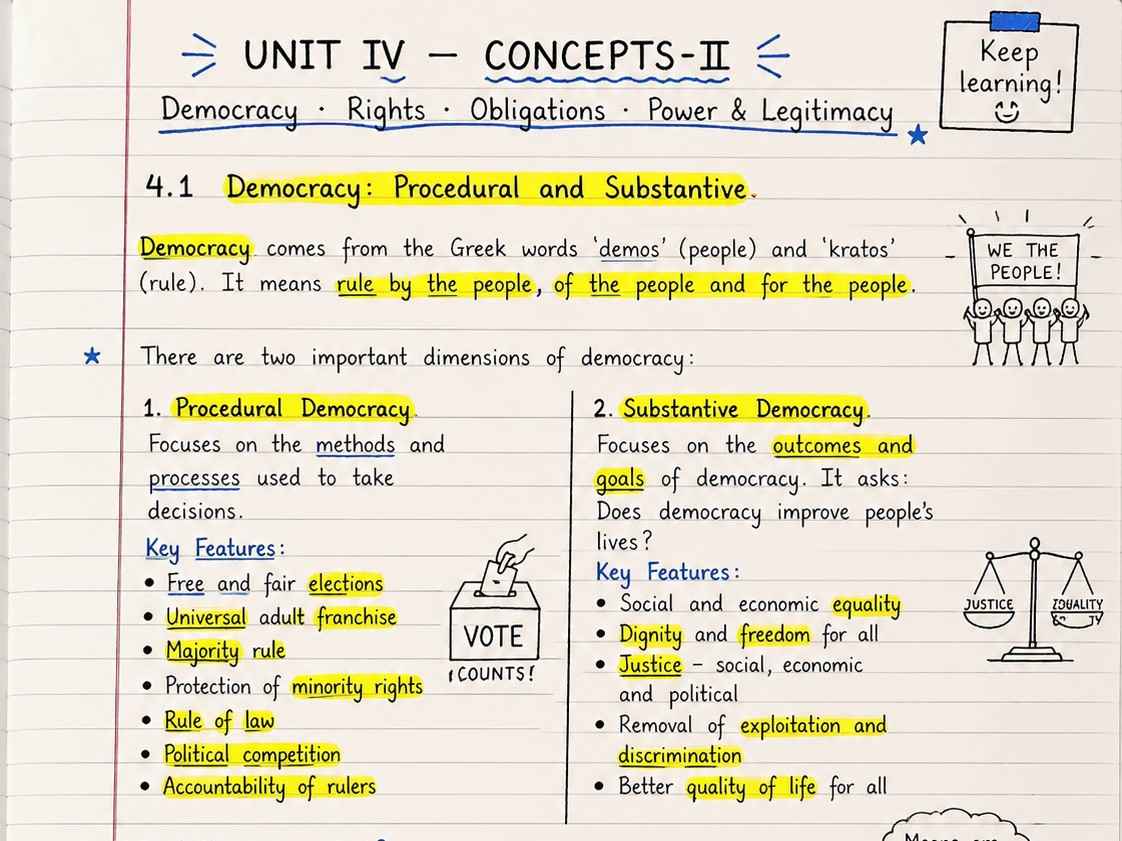 UNIT IV — CONCEPTS-II
Keep
learning!
Democracy · Rights · Obligations · Power & Legitimacy
4.1 Democracy: Procedural and Substantive.
Democracy comes from the Greek words 'demos' (people) and 'kratos'
(rule). It means rule by the people, of the people and for the people.
WE THE
PEOPLE!
There are two important dimensions of democracy:
1. Procedural Democracy.
Focuses on the methods and
processes used to take
decisions.
Key Features:
• Free and fair elections
• Universal adult franchise
• Majority rule
• Protection of minority rights
• Rule of law
• Political competition
• Accountability of rulers
VOTE
COUNTS!
2. Substantive Democracy.
Focuses on the outcomes and
goals of democracy. It asks:
Does democracy improve people's
lives?
Key Features:
• Social and economic equality
• Dignity and freedom for all
• Justice – social, economic
and political
• Removal of exploitation and
discrimination
• Better quality of life for all
JUSTICE